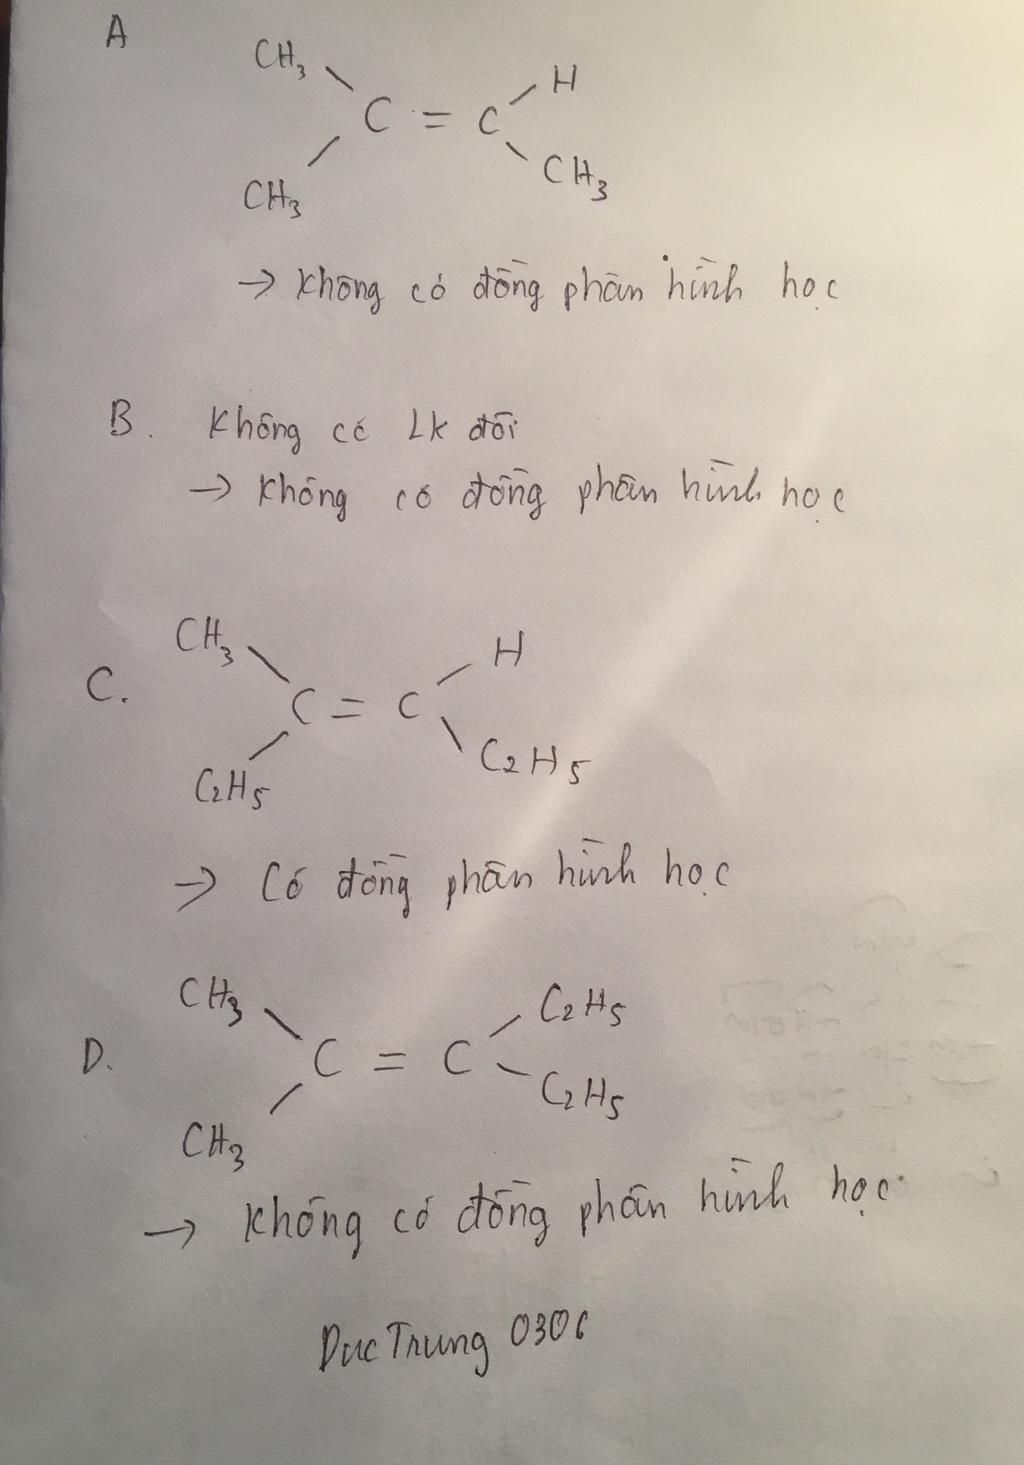 A
CH3 H
C = C
CH3 CH3
→ Không có đồng phân hình học
B. Không có Lk đôi
→ Không có đồng phân hình học
CH3 H
C. C = C
C2H5 C2H5
→ Có đồng phân hình học
CH3 C2H5
D. C = C
CH3 C2H5
→ Không có đồng phân hình học
Duc Trung 0306